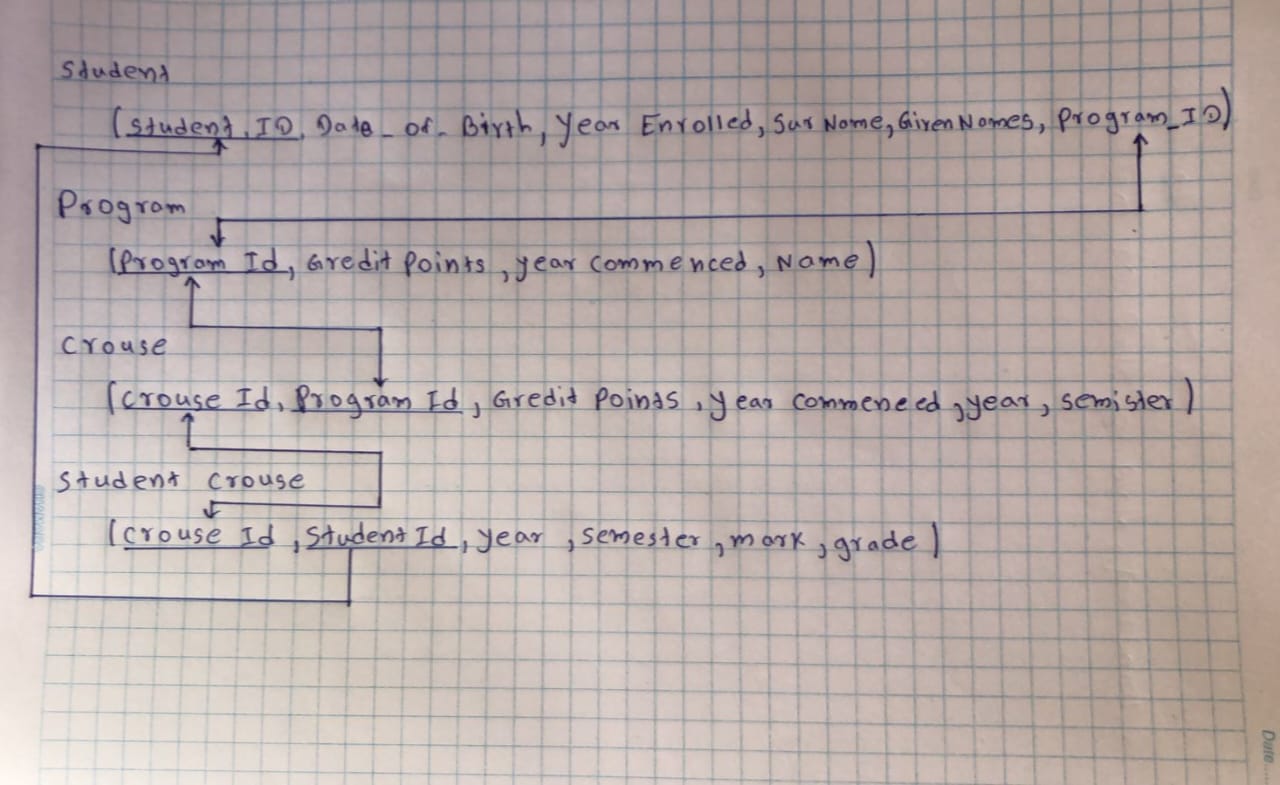 Student
(Student ID, Date_of_Birth, Year Enrolled, Sur Name, Given Names, Program_ID)
Program
(Program Id, Gredit Points, year commenced, Name)
Crouse
(Crouse Id, Program Id, Gredit Points, year commeneed, year, semister)
Student Crouse
(Crouse Id, Student Id, year, semester, mark, grade)
Date